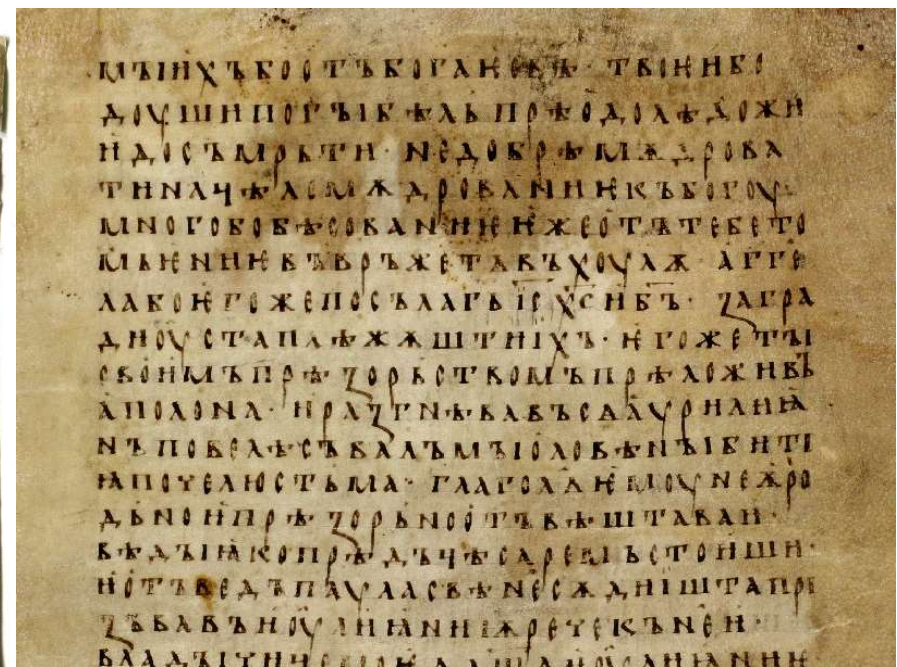 мꙑихъбоотъбога
доушипогꙑбѣльпрѣодолѣдожи
идосъмрьти · недобрѣмѫдрова
тиначѧсмѫдрованиѥкъбогоу
многобобѣсованиѥѥжеотътебето
мьѥниѥвъвръжетѧвъхоулѫ · аггє
лабоѥгожепосълагь іс хс снбъ · загра
диоустаплѣжѫштиіхъ · ѥгожетꙑ
своимъпрѣзорьствомъпрѣложивъ
аполона · иразгнѣвавъсѧаурилиꙗ
нъповелѣсъваломъіоловѣнꙑібити
ꙗпочелюстьма · глаголѧѥмоунеѫро
дьноипрѣзорьноотъвѣштаваи ·
вѣдꙑꙗкопрѣдъчѣсаремьстоиши ·
иотъведъпауласвѣнесѫдиіштапри
зъвавъиоулиꙗниіѫречекънеи